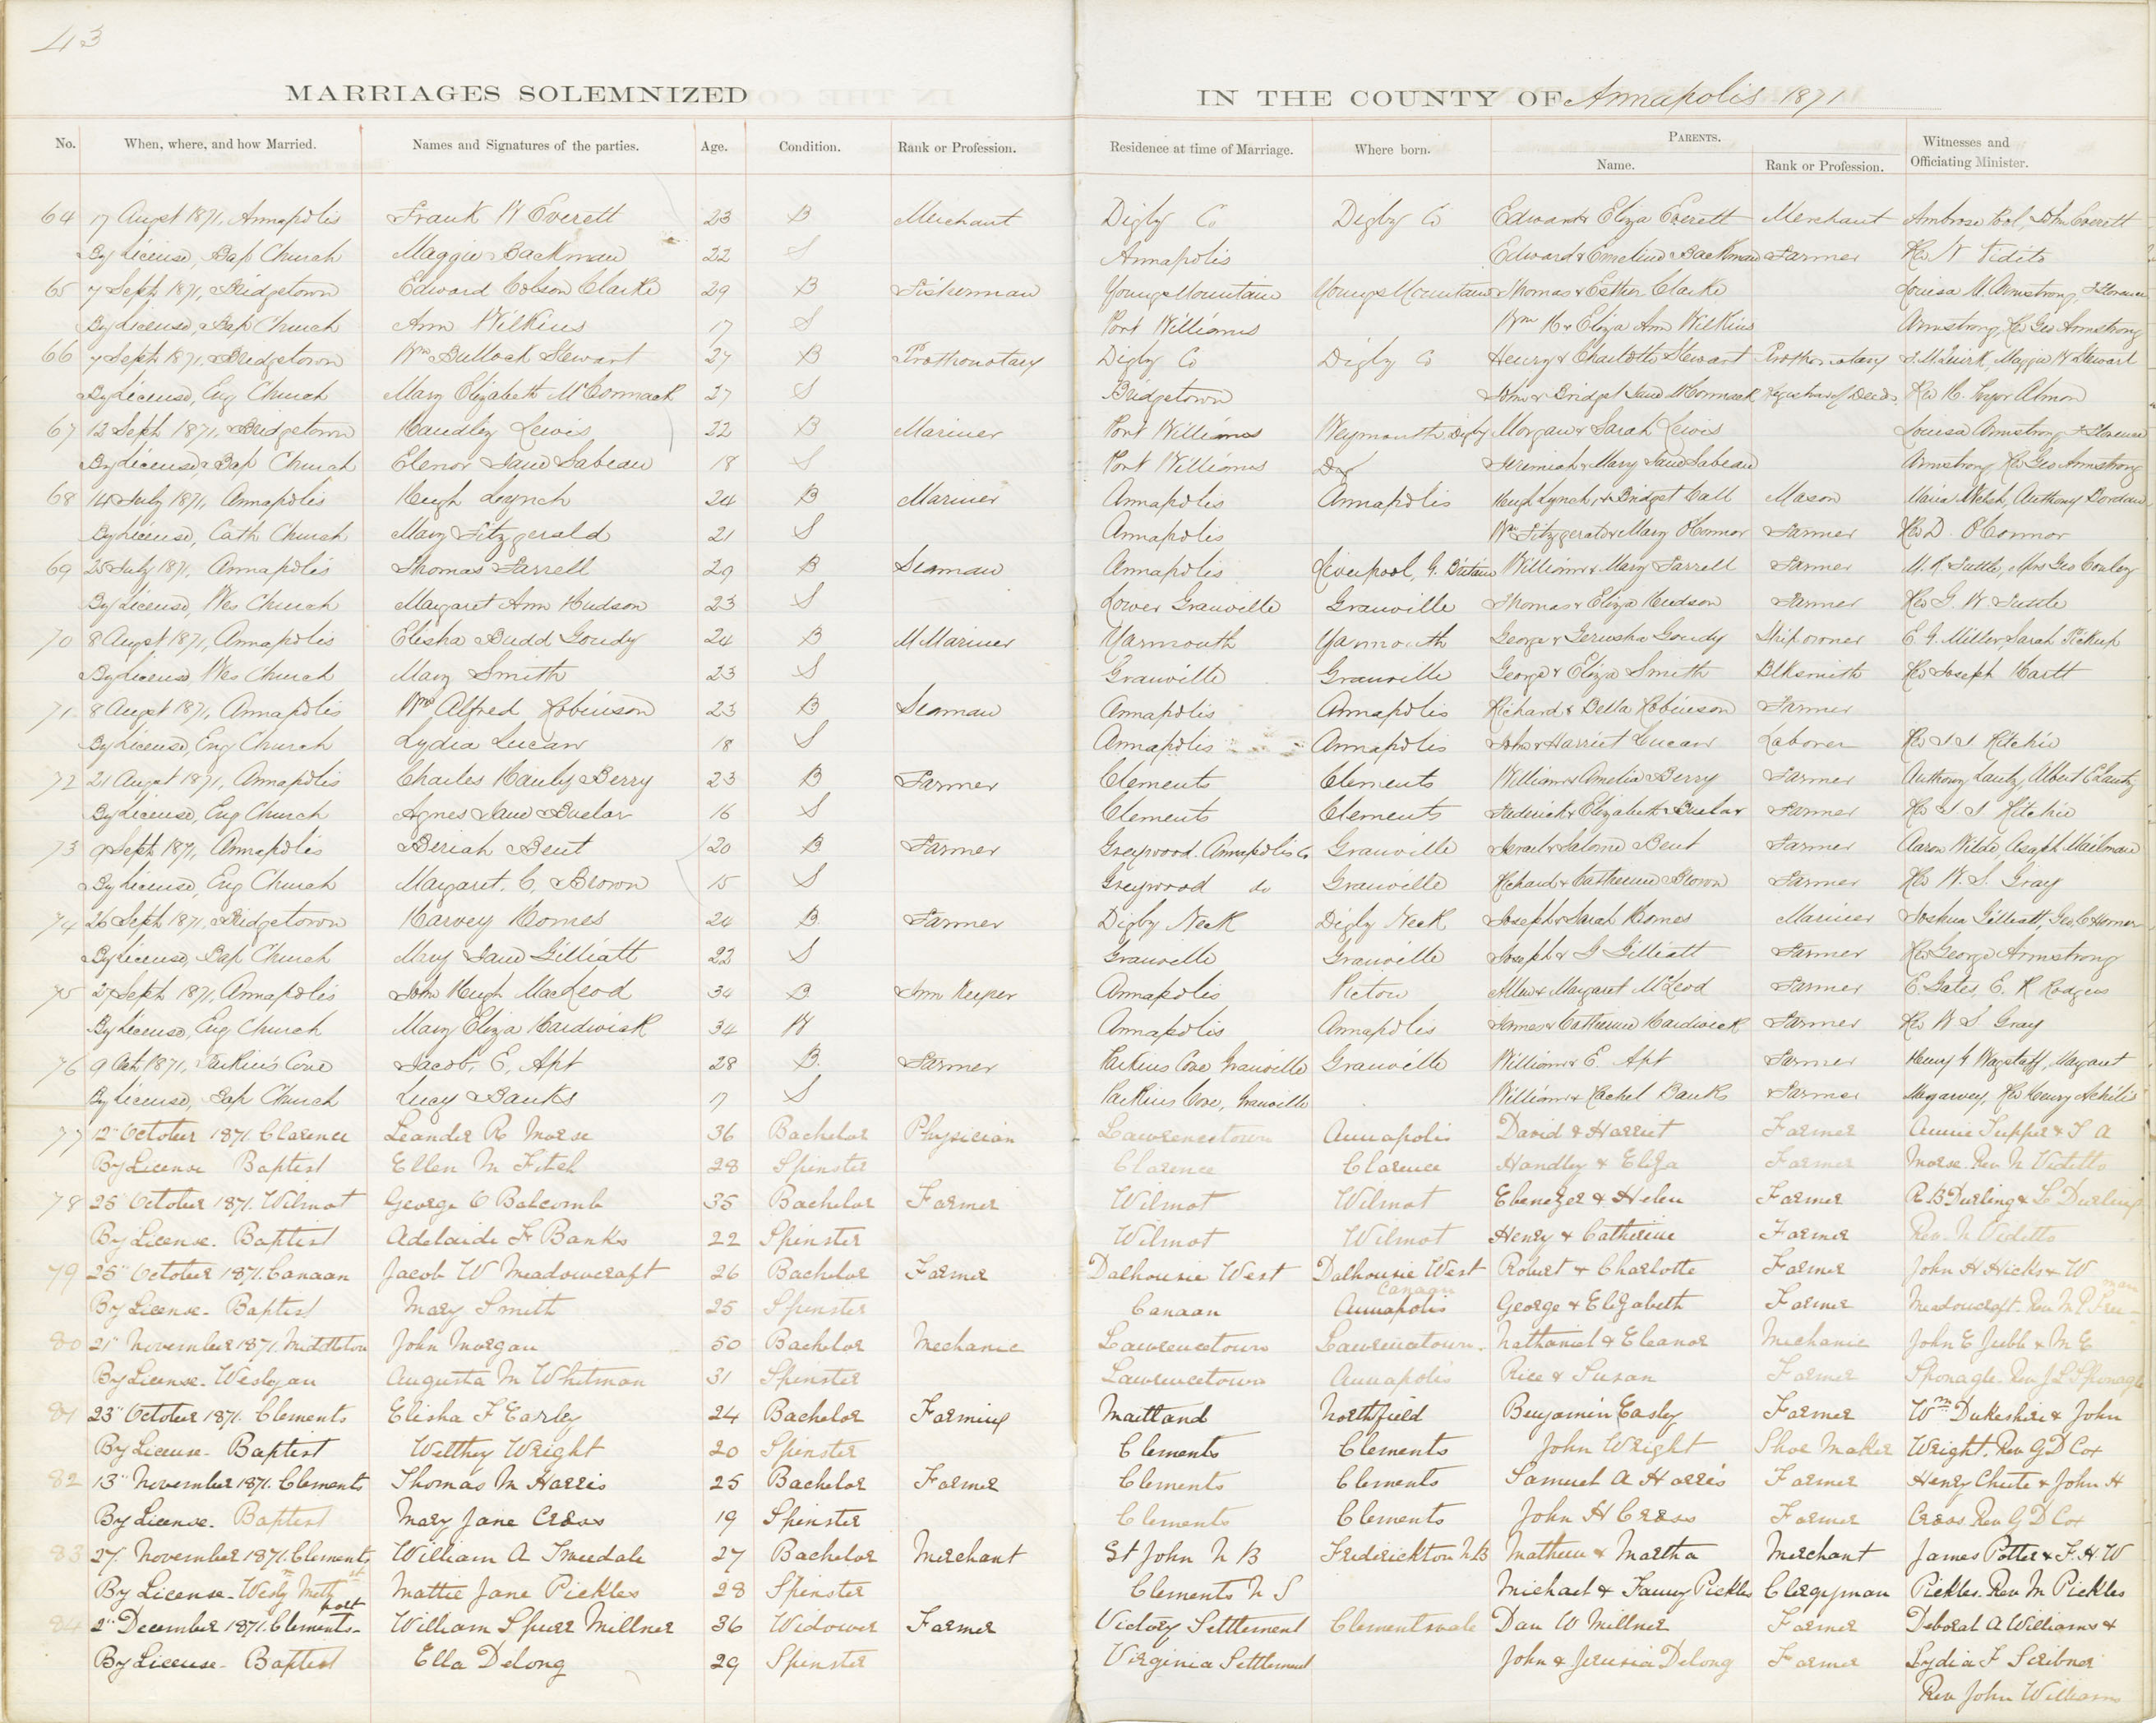 43
MARRIAGES SOLEMNIZED IN THE COUNTY OF Annapolis 1871
No. When, where, and how Married. Names and Signatures of the parties. Age. Condition. Rank or Profession. Residence at time of Marriage. Where born. PARENTS. Name. Rank or Profession. Witnesses and Officiating Minister.
64 17 Augst 1871, Annapolis Frank W Everett 23 B Merchant Digby Co Digby Co Edward & Eliza Everett Merchant Ambrose John Everett
By License, Bap Church Maggie Backman 22 S Annapolis Edward & Emeline Backman Farmer Rev N Vidito
65 7 Sept 1871, Bridgetown Edward Clarke 29 B Fisherman Youngs Mountain Youngs Mountain Thomas & Esther Clarke Louisa M. Armstrong, Florence
By License, Bap Church Ann Wilkins 17 S Port Williams Wm H & Eliza Ann Wilkins Armstrong, Rev Geo Armstrong
66 7 Sept 1871, Bridgetown Wm Bullock Stewart 27 B Prothonotary Digby Co Digby Co Henry & Charlotte Stewart Prothonotary Quirk, Maggie W Stewart
By License, Eng Church Mary Elizabeth McCormack 27 S Bridgetown John & Bridget Jane McCormack Registrar of Deeds Rev H. Pryor Almon
67 12 Sept 1871, Bridgetown Handley Lewis 22 B Mariner Port Williams Weymouth, Digby Morgan & Sarah Lewis Louisa Armstrong & Florence
By License, Bap Church Elenor Jane Sabean 18 S Port Williams Do Jeremiah & Mary Jane Sabean Armstrong Rev Geo Armstrong
68 14 July 1871, Annapolis Hugh Lynch 24 B Mariner Annapolis Annapolis Hugh Lynch, & Bridget Call Mason Maria Welsh, Anthony
By License, Cath Church Mary Fitzgerald 21 S Annapolis Wm Fitzgerald & Mary O'Connor Farmer Rev D. O'Connor
69 25 July 1871, Annapolis Thomas Farrell 29 B Seaman Annapolis Liverpool, G. Britain William & Mary Farrell Farmer M. R Tuttle, Mrs Geo Conley
By License, Wes Church Margaret Ann Hudson 23 S Lower Granville Granville Thomas & Eliza Hudson Farmer Rev G. W. Tuttle
70 8 Augst 1871, Annapolis Elisha Budd Goudy 24 B M Mariner Yarmouth Yarmouth George & Gerusha Goudy Ship owner E. G. Miller, Sarah Pickup
By License Wes Church Mary Smith 23 S Granville Granville George & Eliza Smith Blksmith Rev Joseph Hartt
71 8 Augst 1871, Annapolis Wm Alfred Robinson 23 B Seaman Annapolis Annapolis Richard & Bella Robinson Farmer
By License, Eng Church Lydia Lucan 18 S Annapolis Annapolis John & Harriet Lucan Laborer Rev J. J. Ritchie
72 21 Augst 1871, Annapolis Charles Hanly Berry 23 B Farmer Clements Clements William & Amelia Berry Farmer Anthony Lantz, Albert E Lantz
By License, Eng Church Agnes Jane 16 S Clements Clements Frederick & Elizabeth Farmer Rev J. J Ritchie
73 9 Sept 1871, Annapolis Beriah Bent 20 B Farmer Greywood. Annapolis Co Granville Israel & Salome Bent Farmer Aaron Wilde, Asaph Mailman
By License, Eng Church Margaret. C. Brown 15 S Greywood do Granville Richard & Catherine Brown Farmer Rev W. S. Gray
74 26 Sept 1871, Bridgetown Harvey Homes 24 B Farmer Digby Neck Digby Neck Joseph & Sarah Homes Mariner Joshua Gilliatt, Geo C Homes
By License, Bap Church Mary Jane Gilliatt 22 S Granville Granville Joseph & G Gilliatt Farmer Rev George Armstrong
75 27 Sept 1871, Annapolis John Hugh MacLeod 34 B Inn Keeper Annapolis Pictou Allen & Margaret McLeod Farmer E. Gates, E. R Rodgers
By License, Eng Church Mary Eliza Hardwick 34 W Annapolis Annapolis James & Catherine Hardwick Farmer Rev W S. Gray
76 9 Oct 1871, Parkins Cove Jacob, E, Apt 28 B. Farmer Parkins Cove Granville Granville William & E. Apt Farmer Henry G Wagstaff, Margaret
By License, Bap Church Lucy Banks 17 S Parkins Cove, Granville William & Rachel Banks Farmer Megarvey, Rev Henry Achilis
77 12" October 1871. Clarence Leander R Morse 36 Bachelor Physician Lawrencetown Annapolis David & Harriet Farmer Annie Tupper & T A
By License Baptist Ellen M Fitch 28 Spinster Clarence Clarence Handley & Eliza Farmer Morse. Rev. N Viditto
78 25" October 1871. Wilmot George C Balcomb 35 Bachelor Farmer Wilmot Wilmot Ebenezer & Helen Farmer R. B Durling & L Durling
By License. Baptist Adelaide F Banks 22 Spinster Wilmot Wilmot Henry & Catherine Farmer Rev. N Viditto
79 25" October 1871. Canaan Jacob W Meadowcraft 26 Bachelor Farmer Dalhousie West Dalhousie West Robert & Charlotte Farmer John H Hicks & W
By License - Baptist Mary Smith 25 Spinster Canaan Canaan Annapolis George & Elizabeth Farmer Meadowcraft - Rev. M P Free-man
80 21" November 1871. Middleton John Morgan 50 Bachelor Mechanic Lawrencetown Lawrencetown. Nathaniel & Eleanor Mechanic John E Jubb & M E
By License - Wesleyan Augusta M Whitman 31 Spinster Lawrencetown Annapolis Rice & Susan Farmer Sponagle. Rev. J L Sponagle
81 23" October 1871. Clements Elisha F Earley 24 Bachelor Farming Maitland Northfield Benjamin Easley Farmer Wm Dukeshire & John
By License - Baptist Welthey Wright 20 Spinster Clements Clements John Wright Shoe Maker Wright. Rev. G D Cox
82 13" November 1871. Clements Thomas M Harris 25 Bachelor Farmer Clements Clements Samuel A Harris Farmer Henry Chute & John H
By License. Baptist Mary Jane Cross 19 Spinster Clements Clements John H Cross Farmer Cross. Rev G D Cox
83 27. November 1871. Clements William A Tweedale 27 Bachelor Merchant St John N B Fredericton N.B Mathew & Martha Merchant James Potter & F. H. W
By License - Wesn Methst Mattie Jane Pickles 28 Spinster Clements N S Michael & Fanny Pickles Clergyman Pickles. Rev. M Pickles
84 2" December 1871. Clementsport William Spurr Millner 36 Widower Farmer Victory Settlement Clementsvale Dan W Millner Farmer Deborah A Williams &
By License - Baptist Ella Delong 29 Spinster Virginia Settlement John & Jerusia Delong Farmer Lydia F Scribner
Rev John Williams